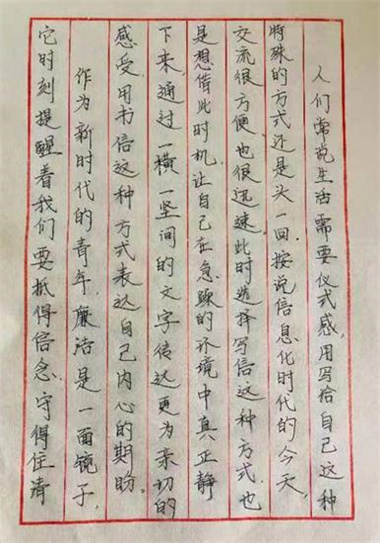 人们常说生活需要仪式感,用写给自己这种
特殊的方式还是头一回。按说信息化时代的今天,
交流很方便,也很迅速。此时选择写信这种方式,也
是想借此时机,让自己在急躁的环境中真正静
下来,通过一横一竖间的文字传达更为亲切的
感受,用书信这种方式表达自己内心的期盼。
作为新时代的青年,廉洁是一面镜子,
它时刻提醒着我们要抵得信念、守得住清